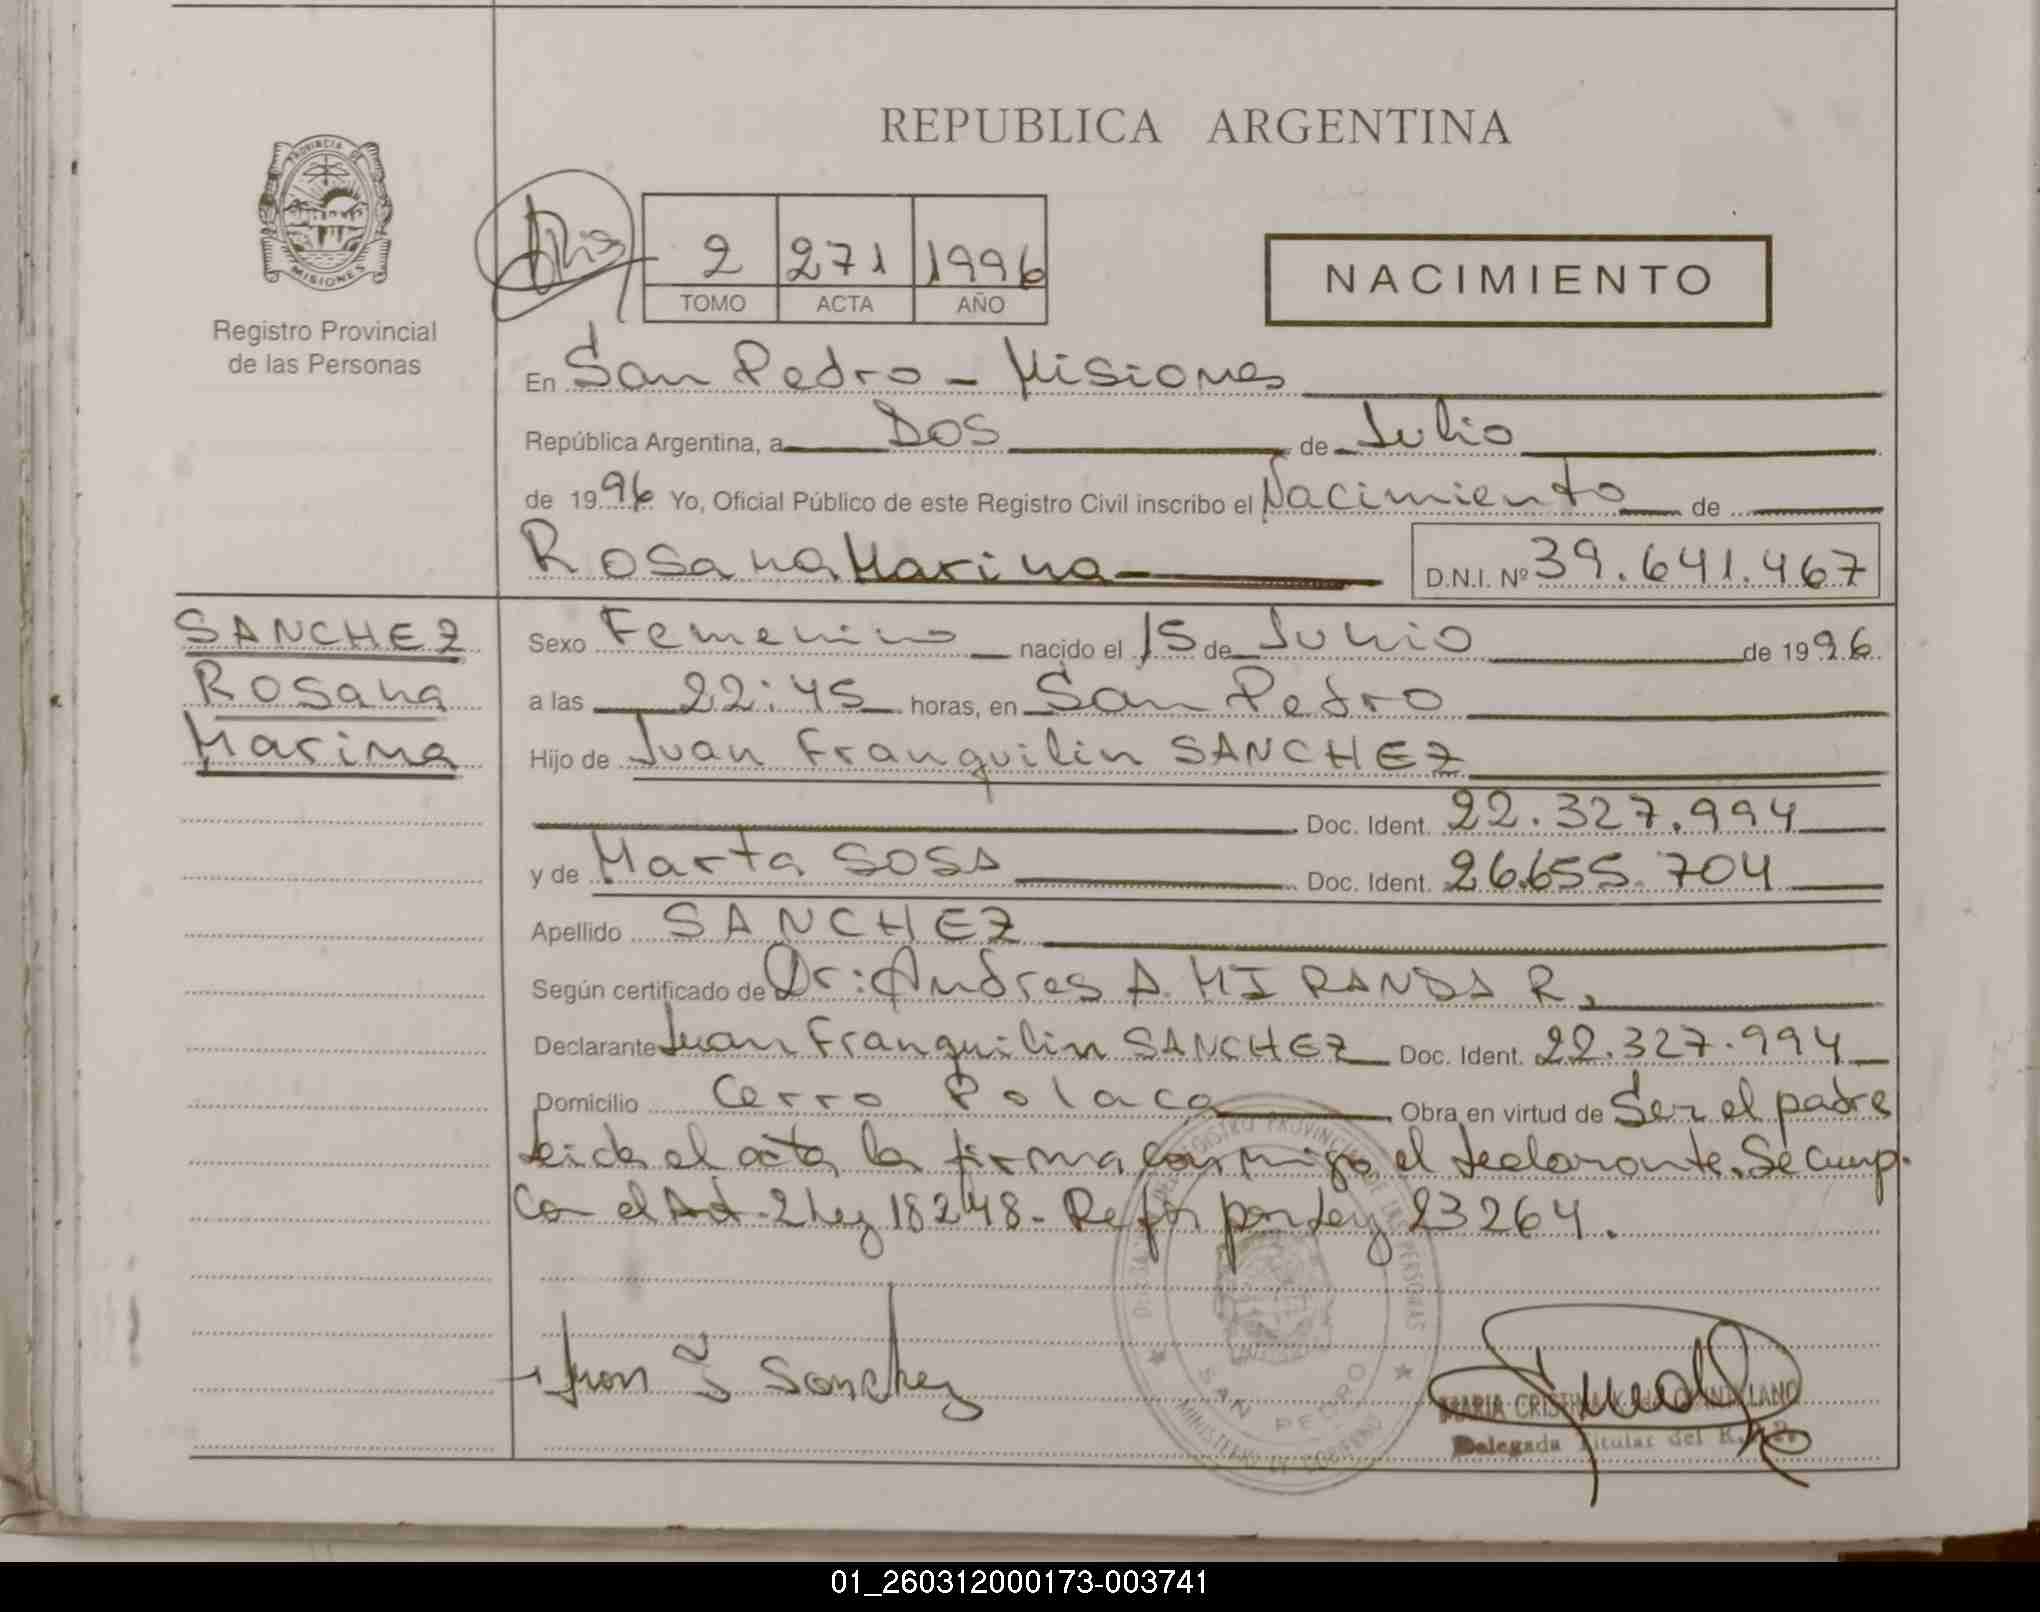 REPUBLICA ARGENTINA
PROVINCIA DE
MISIONES
Registro Provincial
de las Personas
2 271 1996
TOMO ACTA AÑO
NACIMIENTO
En San Pedro - Misiones
República Argentina, a Dos de Julio
de 1996 Yo, Oficial Público de este Registro Civil inscribo el Nacimiento de
Rosana Marina D.N.I. Nº 39.641.467
SANCHEZ
Rosana
Marina
Sexo Femenino nacido el 15 de Junio de 1996
a las 22:45 horas, en San Pedro
Hijo de Juan Franquilin SANCHEZ
Doc. Ident. 22.327.994
y de Marta SOSA Doc. Ident. 26.655.704
Apellido SANCHEZ
Según certificado de Dr: Andres A. MIRANDA R.
Declarante Juan Franquilin SANCHEZ Doc. Ident. 22.327.994
Domicilio Cerro Polaco Obra en virtud de Ser el padre
Leida el acta la firma conmigo el declarante. Se cump.
Con el Art. 2 Ley 18248 - Refor por Ley 23264.
Juan F Sanchez
REGISTRO PROVINCIAL DE LAS PERSONAS
SAN PEDRO
MINISTERIO DE GOBIERNO
MARIA CRISTINA K. de QUINTILLANO
Delegada Titular del R.
01_260312000173-003741